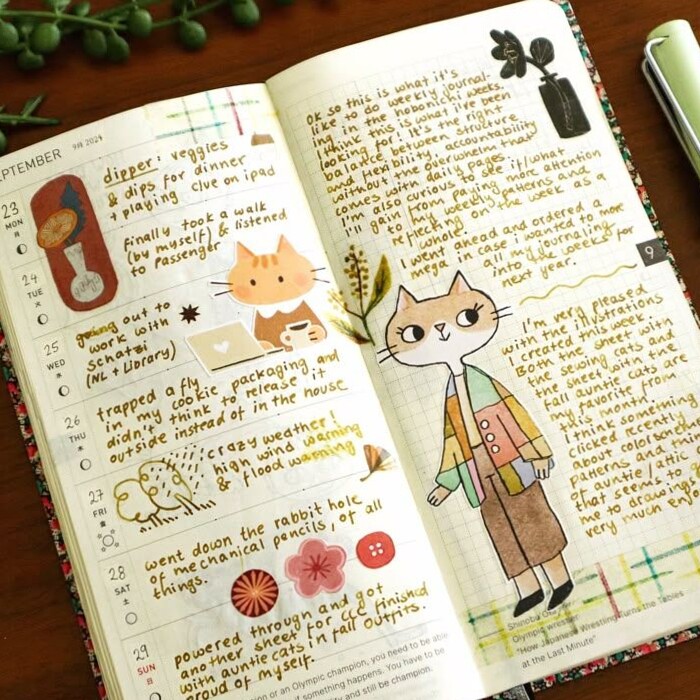 SEPTEMBER 9月 2024
23
MON
月
dipper: veggies
& dips for dinner
+ playing clue on ipad
24
TUE
火
finally took a walk
(by myself) & listened
to passenger
25
WED
水
going out to
work with
schatzi
(NL + Library)
26
THU
木
trapped a fly
in my cookie packaging and
didn't think to release it
outside instead of in the house
27
FRI
金
crazy weather!
high wind warning
& flood warning
28
SAT
土
went down the rabbit hole
of mechanical pencils, of all
things.
29
SUN
日
powered through and got
another sheet for CCC finished
with auntie cats in fall outfits.
proud of myself.
or an Olympic champion, you need to be able
if something happens. You have to be
and still be champion.
OK so this is what it's
like to do weekly journal-
ing in the hobonichi weeks.
I think this is what I've been
looking for! It's the right
balance between structure
and flexibility, accountability
without the overwhelm that
comes with daily pages.
I'm also curious to see if/what
I'll gain from paying more attention
to my weekly patterns and
reflecting on the week as a
whole.
I went ahead and ordered a
mega in case i wanted to move
all my journaling
into the weeks for
next year.
9
I'm very pleased
with the illustrations
I created this week.
Both the sheet with
the sewing cats and
the sheet with the
fall auntie cats are
my favorite from
this month.
I think something
clicked recently
about colors and
patterns and the
of auntie/attic
that seems to
me to drawing
very much
Shinobu
Olympic wrestler
"How Japanese Wrestling Turns the Tables
at the Last Minute"